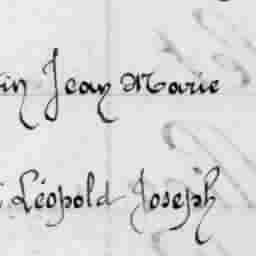 Jean Marie
Léopold Joseph